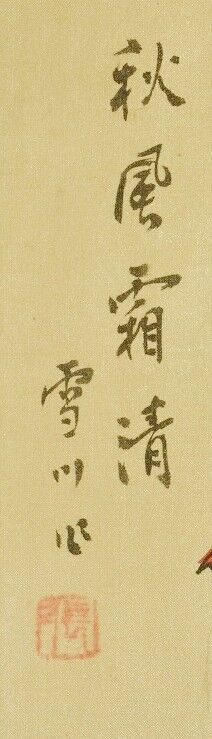 秋風霜清
雪川作